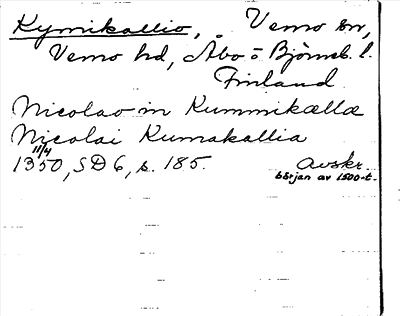 Kymikallio, Vemo sn,
Vemo hd, Åbo o Björneb. l.
Finland
Nicolao in Kummikælla
Nicolai Kumakallia
11/4
1350, SD 6, s. 185. Avskr.
början av 1500-t.